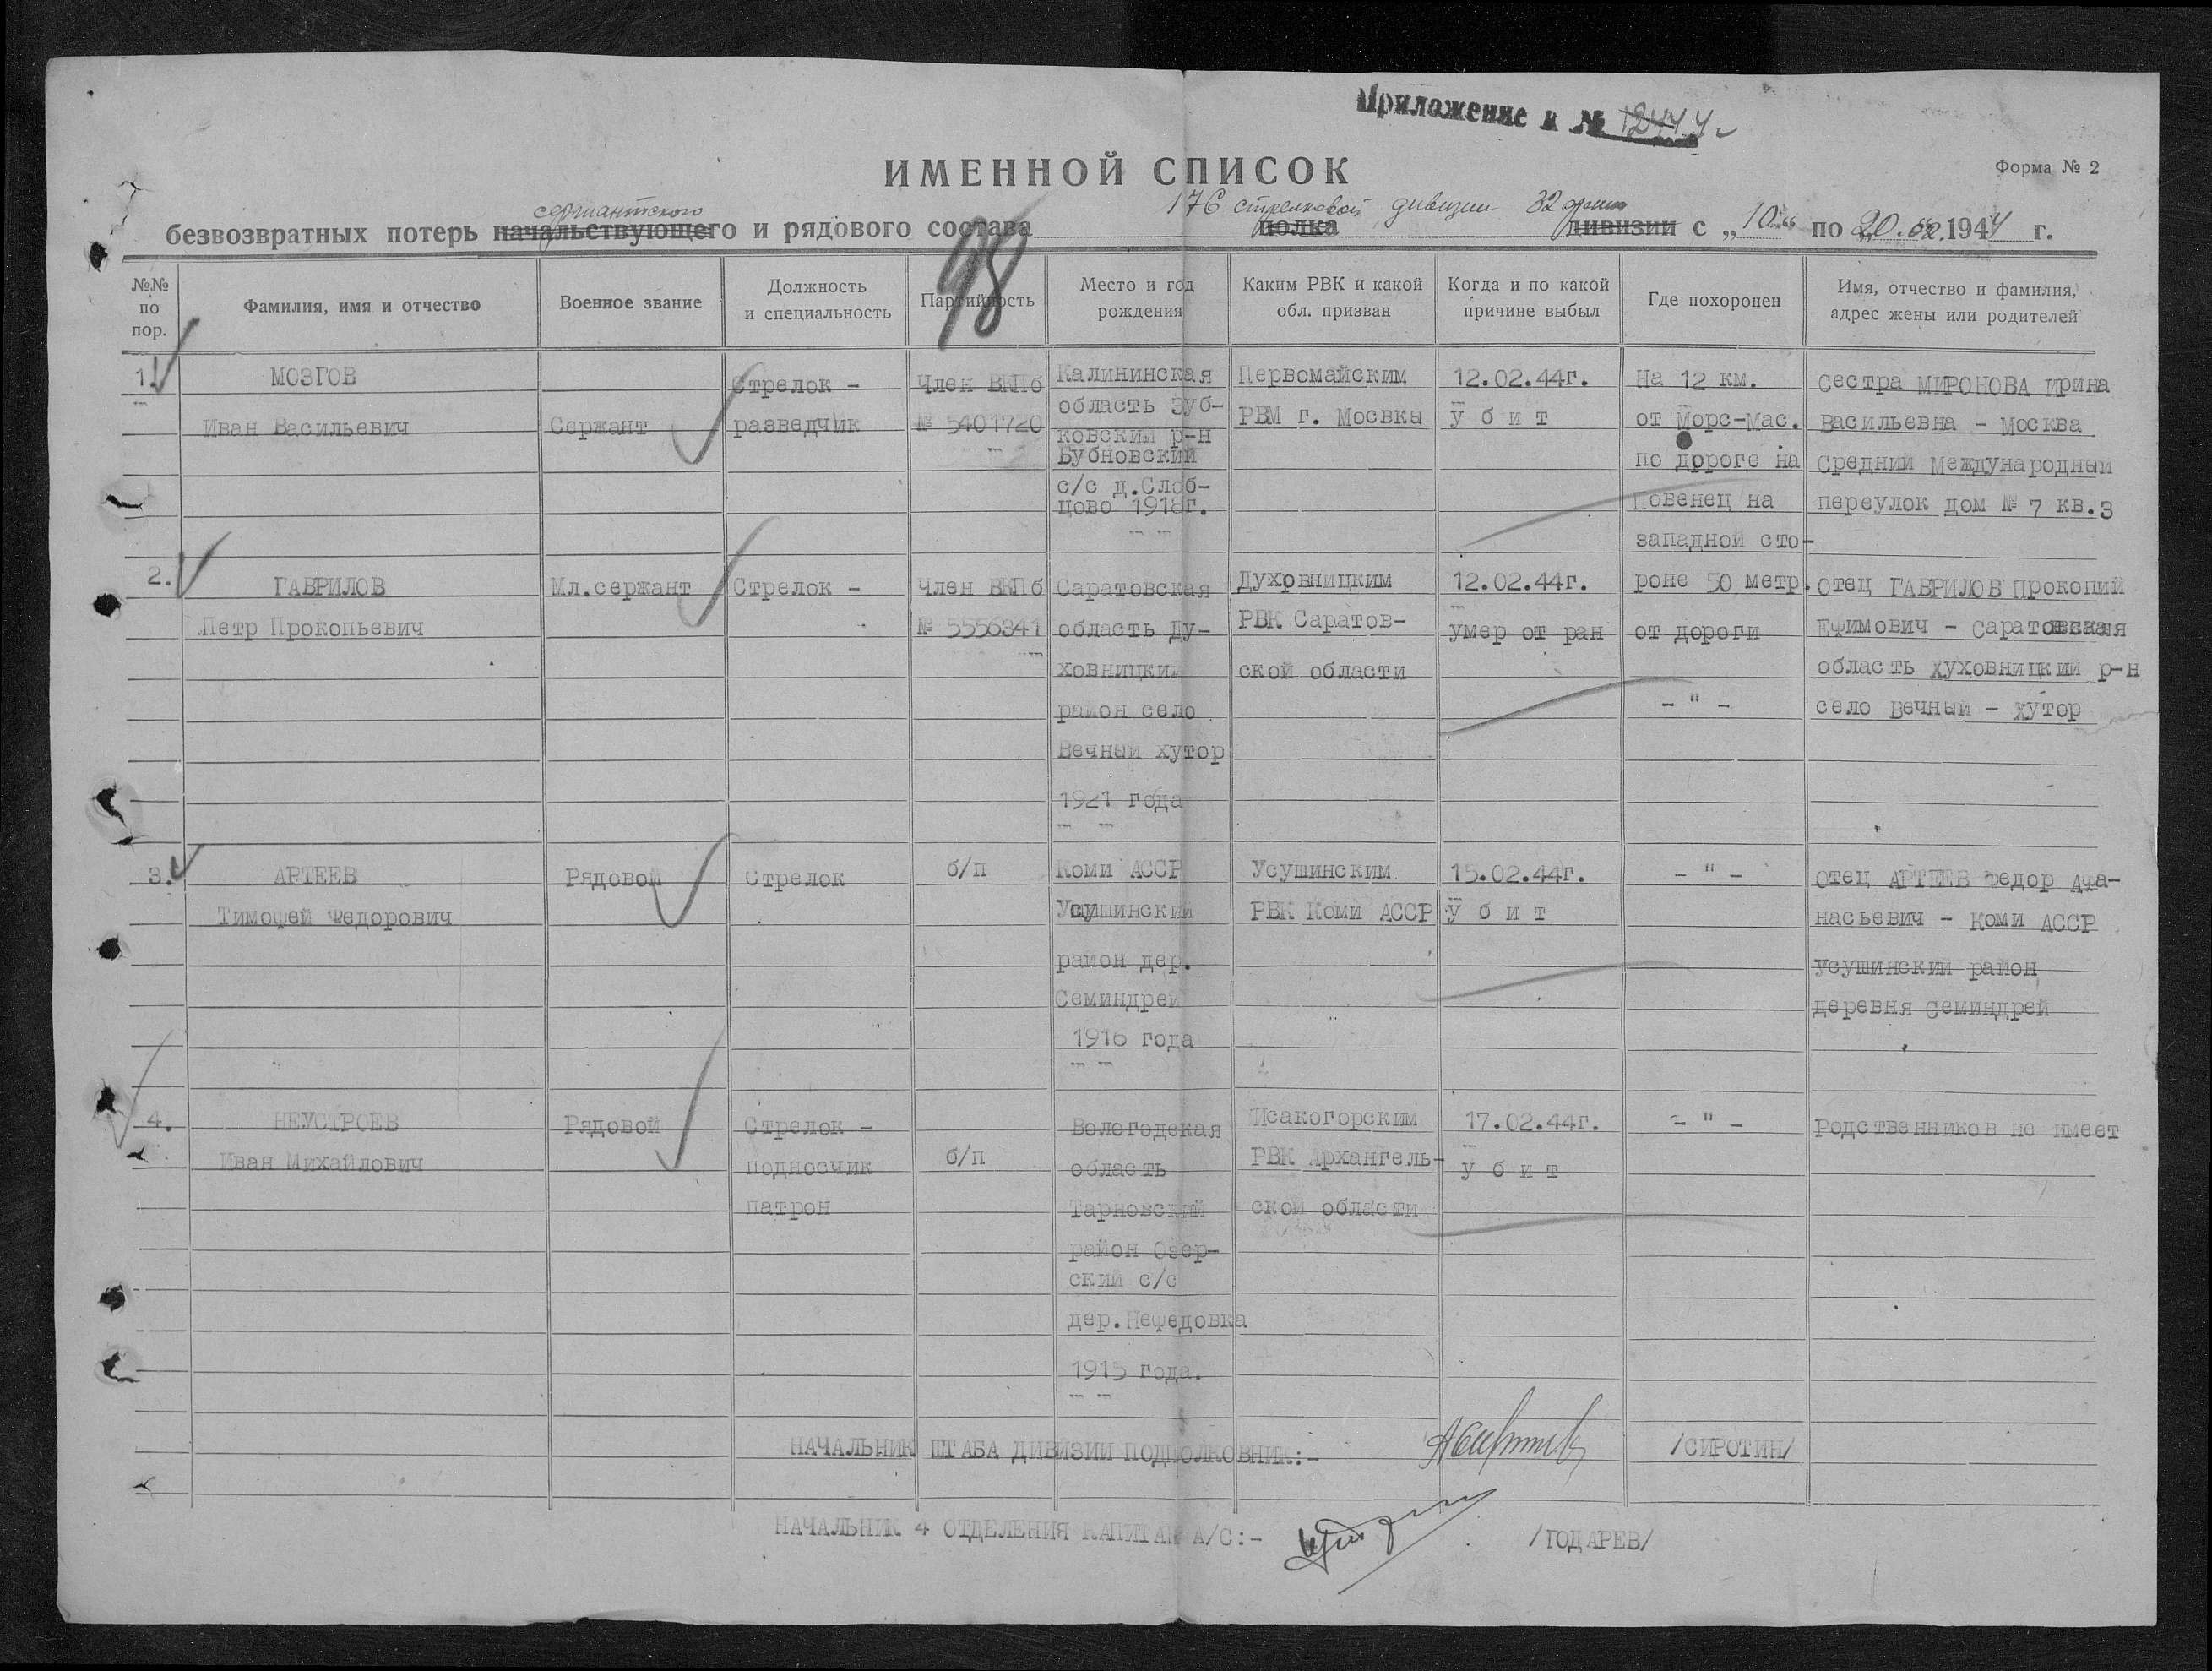 Приложение к № 12444
ИМЕННОЙ СПИСОК
Форма № 2
сержантского
176 стрелковой дивизии 32 армии
безвозвратных потерь начальствующего и рядового состава полка дивизии с „10" по 20.02.1944 г.
98
№№ по пор.
Фамилия, имя и отчество
Военное звание
Должность и специальность
Партийность
Место и год рождения
Каким РВК и какой обл. призван
Когда и по какой причине выбыл
Где похоронен
Имя, отчество и фамилия, адрес жены или родителей
1.
МОЗГОВ
Иван Васильевич
Сержант
Стрелок –
разведчик
Член ВКПб
№ 5401720
Калининская
область Зуб-
ковский р-н
Бубновский
с/с д.Слоб-
цово 1918г.
Первомайским
РВМ г. Мосвка
12.02.44г.
у б и т
На 12 км.
от Морс-Мас.
по дороге на
Повенец на
западной сто-
роне 50 метр.
от дороги
Сестра МИРОНОВА Ирина
Васильевна – Москва
Средний Международный
переулок дом № 7 кв.3
2.
ГАВРИЛОВ
Петр Прокопьевич
Мл.сержант
Стрелок –
Член ВКПб
№ 5556341
Саратовская
область Ду-
ховницкий
район село
Вечный хутор
1921 года
Духовницким
РВК Саратов-
ской области
12.02.44г.
умер от ран
– " –
Отец ГАВРИЛОВ Прокопий
Ефимович – Саратовская
область Духовницкий р-н
село Вечный – хутор
3.
АРТЕЕВ
Тимофей Федорович
Рядовой
Стрелок
б/п
Коми АССР
Усушинский
район дер.
Семиндрей
1916 года
Усушинским
РВК Коми АССР
15.02.44г.
у б и т
– " –
Отец АРТЕЕВ Федор Афа-
насьевич – Коми АССР
Усушинский район
деревня Семиндрей
4.
НЕУСТРОЕВ
Иван Михайлович
Рядовой
Стрелок –
подносчик
патрон
б/п
Вологодская
область
Тарновский
район Озер-
ский с/с
дер.Нефедовка
1915 года.
Исакогорским
РВК Архангель-
ской области
17.02.44г.
у б и т
– " –
Родственников не имеет
НАЧАЛЬНИК ШТАБА ДИВИЗИИ ПОДПОЛКОВНИК:- /СИРОТИН/
НАЧАЛЬНИК 4 ОТДЕЛЕНИЯ КАПИТАН А/С:- /ГОДАРЕВ/